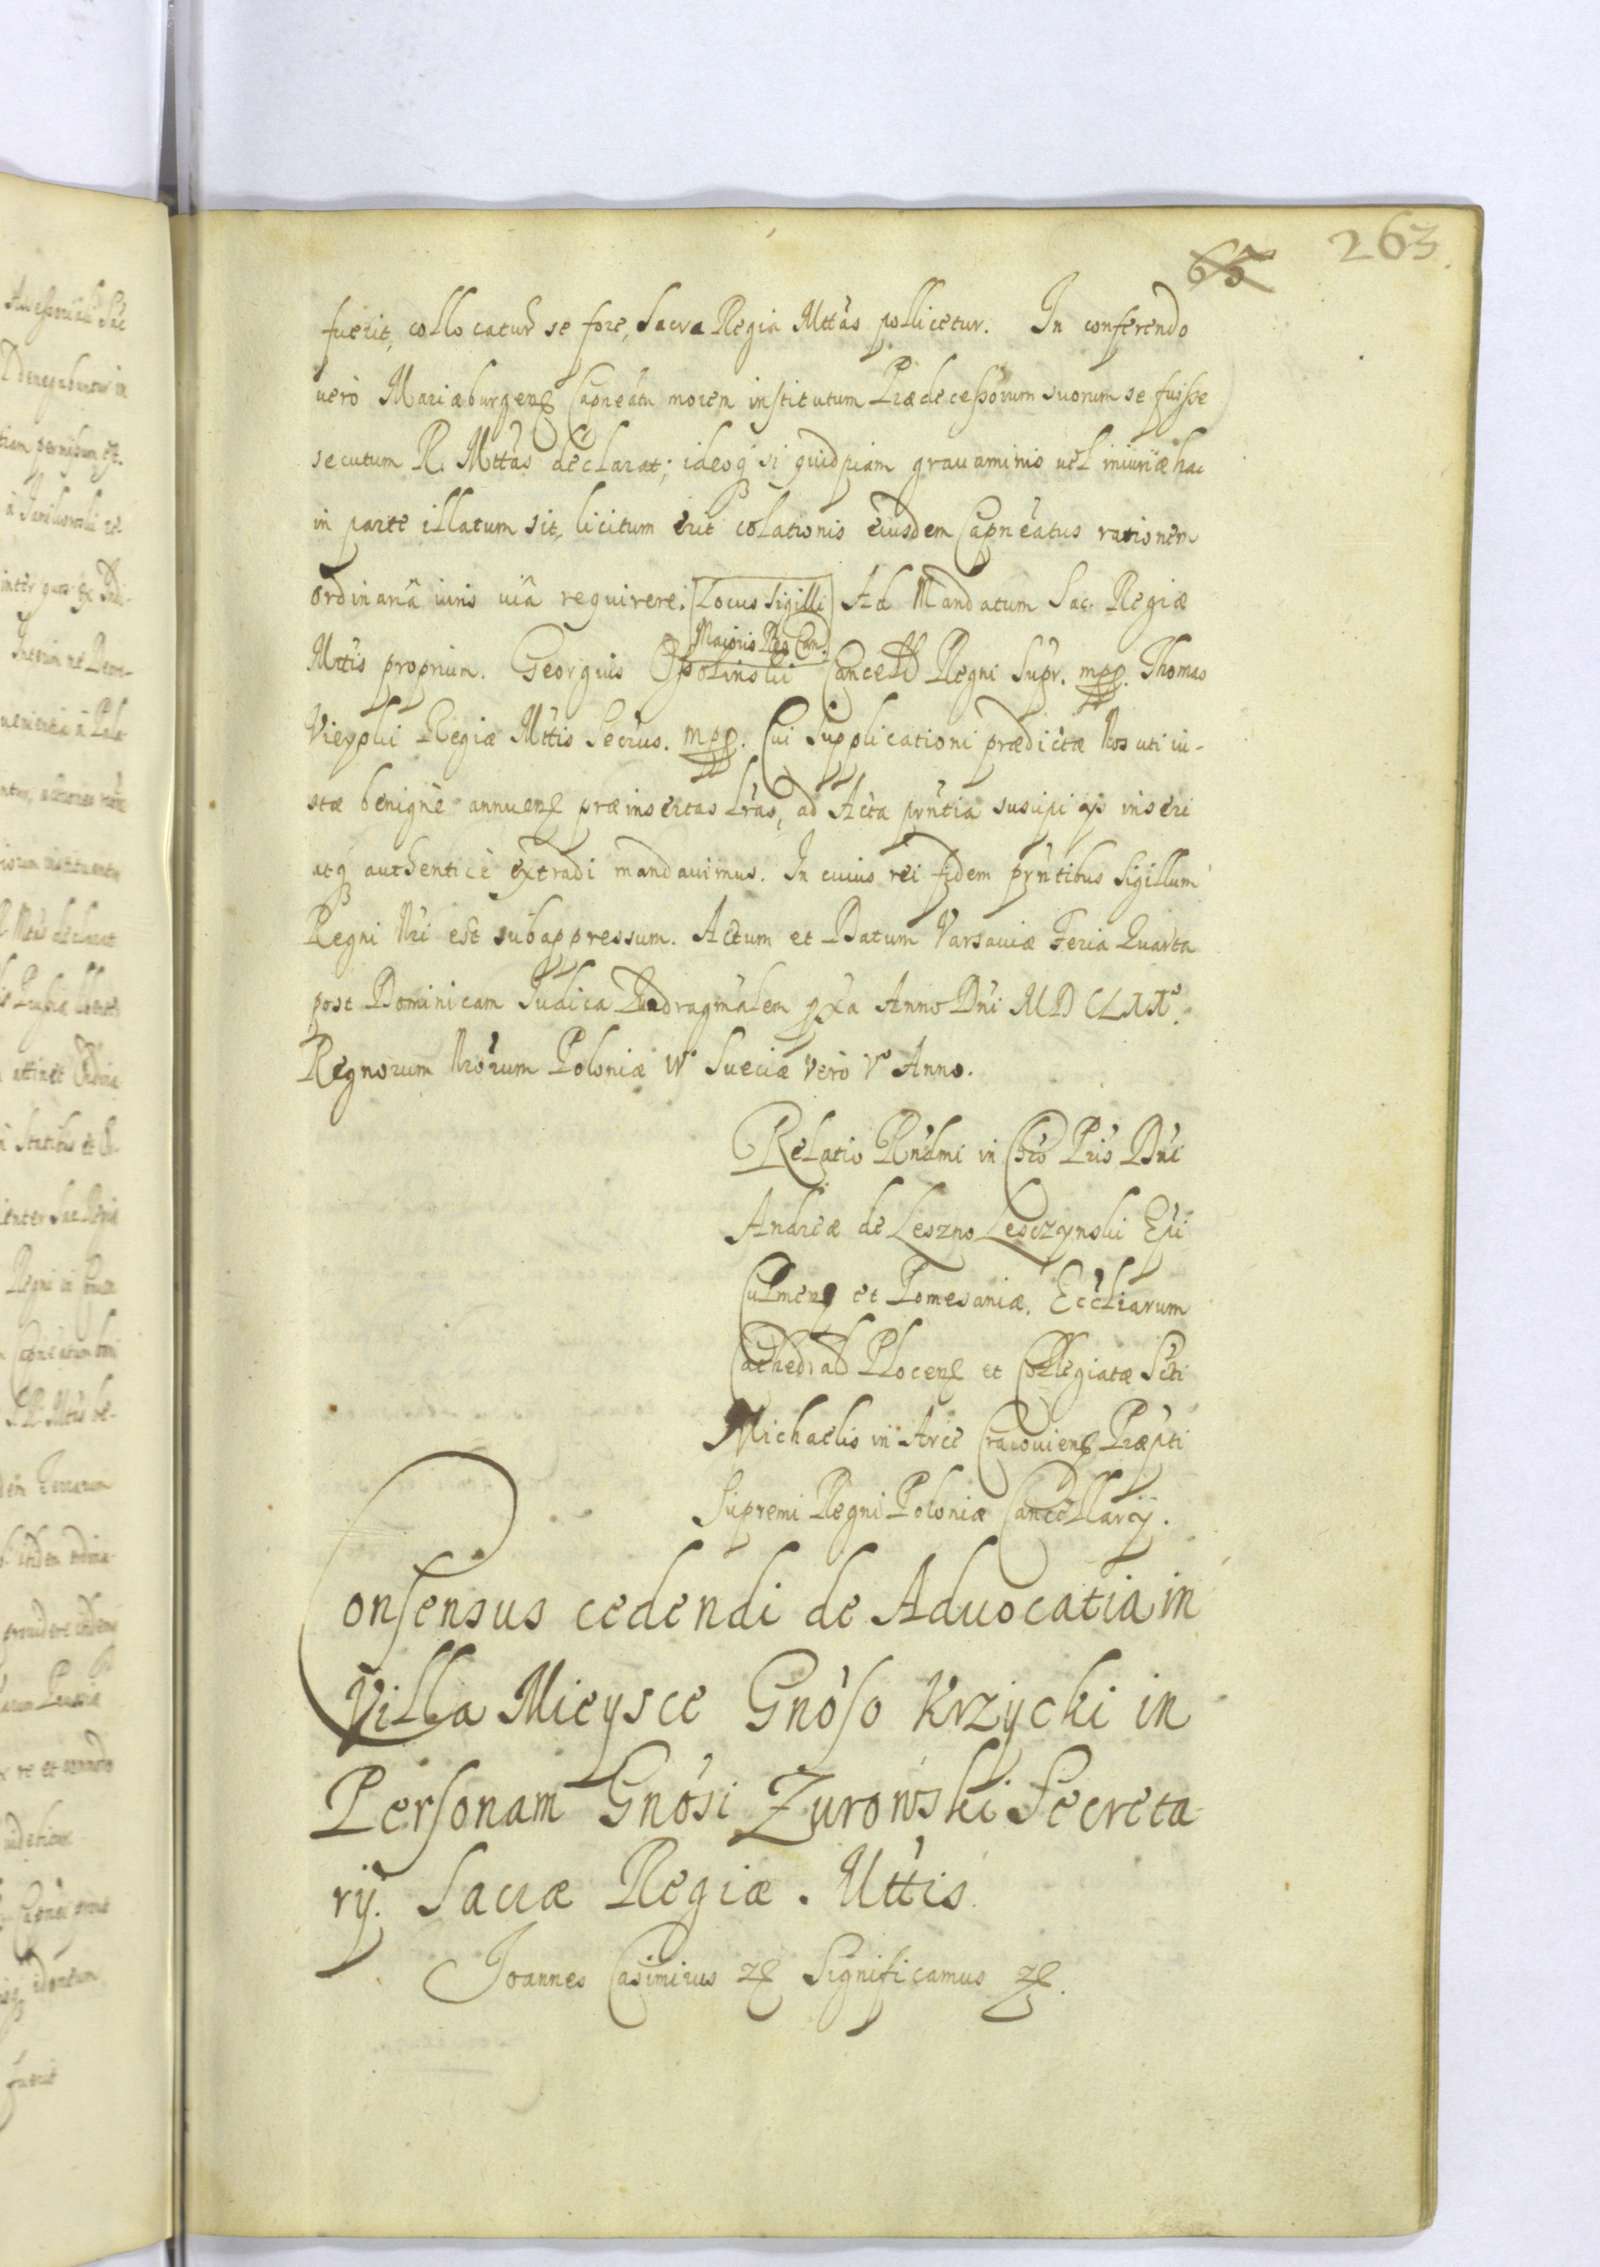 263
65
fuerit, collocatur se fore, Sacra Regia Mttas pollicetur. In conferendo
verò Mariæburgens Capneatu morem institutum Prædecessorum suorum se fuisse
secutum R. Mttas declarat; ideoq si quidpiam grauaminis vel iniuriæ hac
in parte illatum sit, licitum erit colationis eiusdem Capneatus rationem
ordinaria iuris uiâ requirere. Locus Sigilli Ad Mandatum Sac. Regiæ
Maioris Reg Can.
Mttis proprium. Georgius Ossolinski Cancell Regni Supr. mpp. Thomas
Vieyski Regiæ Mttis Secrius. mpp. Cui Supplicationi prædictæ Nos uti iu-
stæ benignè annuens præinsertas Lras, ad Acta pnntia suscipi ijs inseri
atq authenticè extradi mandauimus. In cuius rei fidem pnntibus Sigillum
Regni Nri est subappressum. Actum et Datum Varsauiæ Feria Quarta
post Dominicam Judica Quadragmalem pxa Anno Dni MDCLII°.
Regnorum Nrorum Poloniæ IV° Sueciæ verò V° Anno.
Relatio Rndmi in Chro Pris Dni
Andreæ de Leszno Lesczynski Epi
Culmens et Pomesaniæ, Eccliarum
Cathedral Plocens et Collegiatæ Scti
Michaelis in Arce Cracouiens Præpti
Supremi Regni Poloniæ Cancellarij.
Consensus cedendi de Aduocatia in
Villa Mieysce Gnoso Krzycki in
Personam Gnosi Zurowski Secreta
rij. Sacræ Regiæ. Mttis
Joannes Casimirus etc Significamus etc.